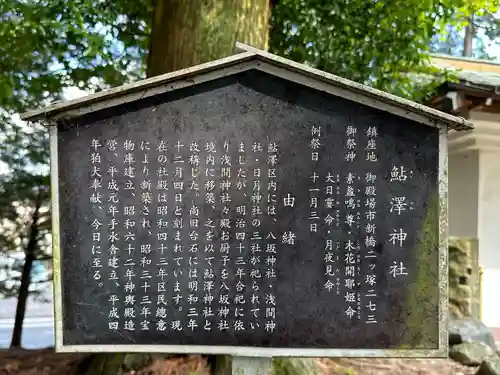 鮎澤神社
鎮座地 御殿場市新橋二ッ塚二七三
御祭神 素盞鳴尊・木花開耶姫命
大日霊命・月夜見命
例祭日 十一月三日
由緒
鮎澤区内には、八坂神社・浅間神
社・日月神社の三社が祀られてい
ましたが、明治四十三年合祀に依
り浅間神社々殿お厨子を八坂神社
境内に移築、之を以て鮎澤神社と
改稱した。尚旧台石には明和三年
十二月四日と刻まれています。現
在の社殿は昭和四十三年区民総意
により新築され、昭和三十三年宝
物庫建立、昭和六十二年神輿殿造
営、平成元年手水舎建立、平成四
年狛犬奉献、今日に至る。